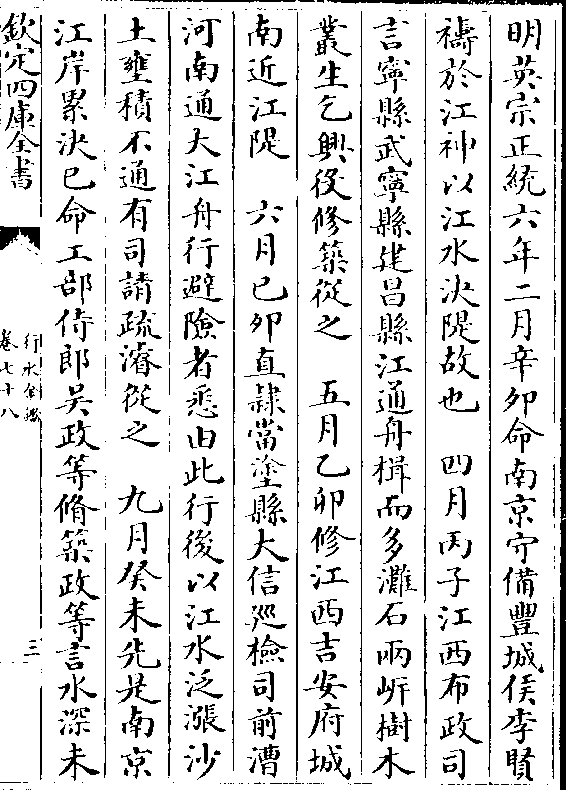 明英宗正統六年二月辛卯命南京守備豐城侯李賢
禱於江神以江水決隄故也　四月丙子江西布政司
言寧縣武寧縣建昌縣江通舟楫而多灘石兩岍樹木
叢生乞興役修築從之　五月乙卯修江西吉安府城
南近江隄　六月己卯直隸當塗縣大信廵檢司前漕
河南通大江舟行避險者悉由此行後以江水泛漲沙
土壅積不通有司請疏濬從之　九月癸未先是南京
江岸累決已命工部侍郎吴政等脩築政等言水深未
欽定四庫全書
行水金鑑
卷七十八
三